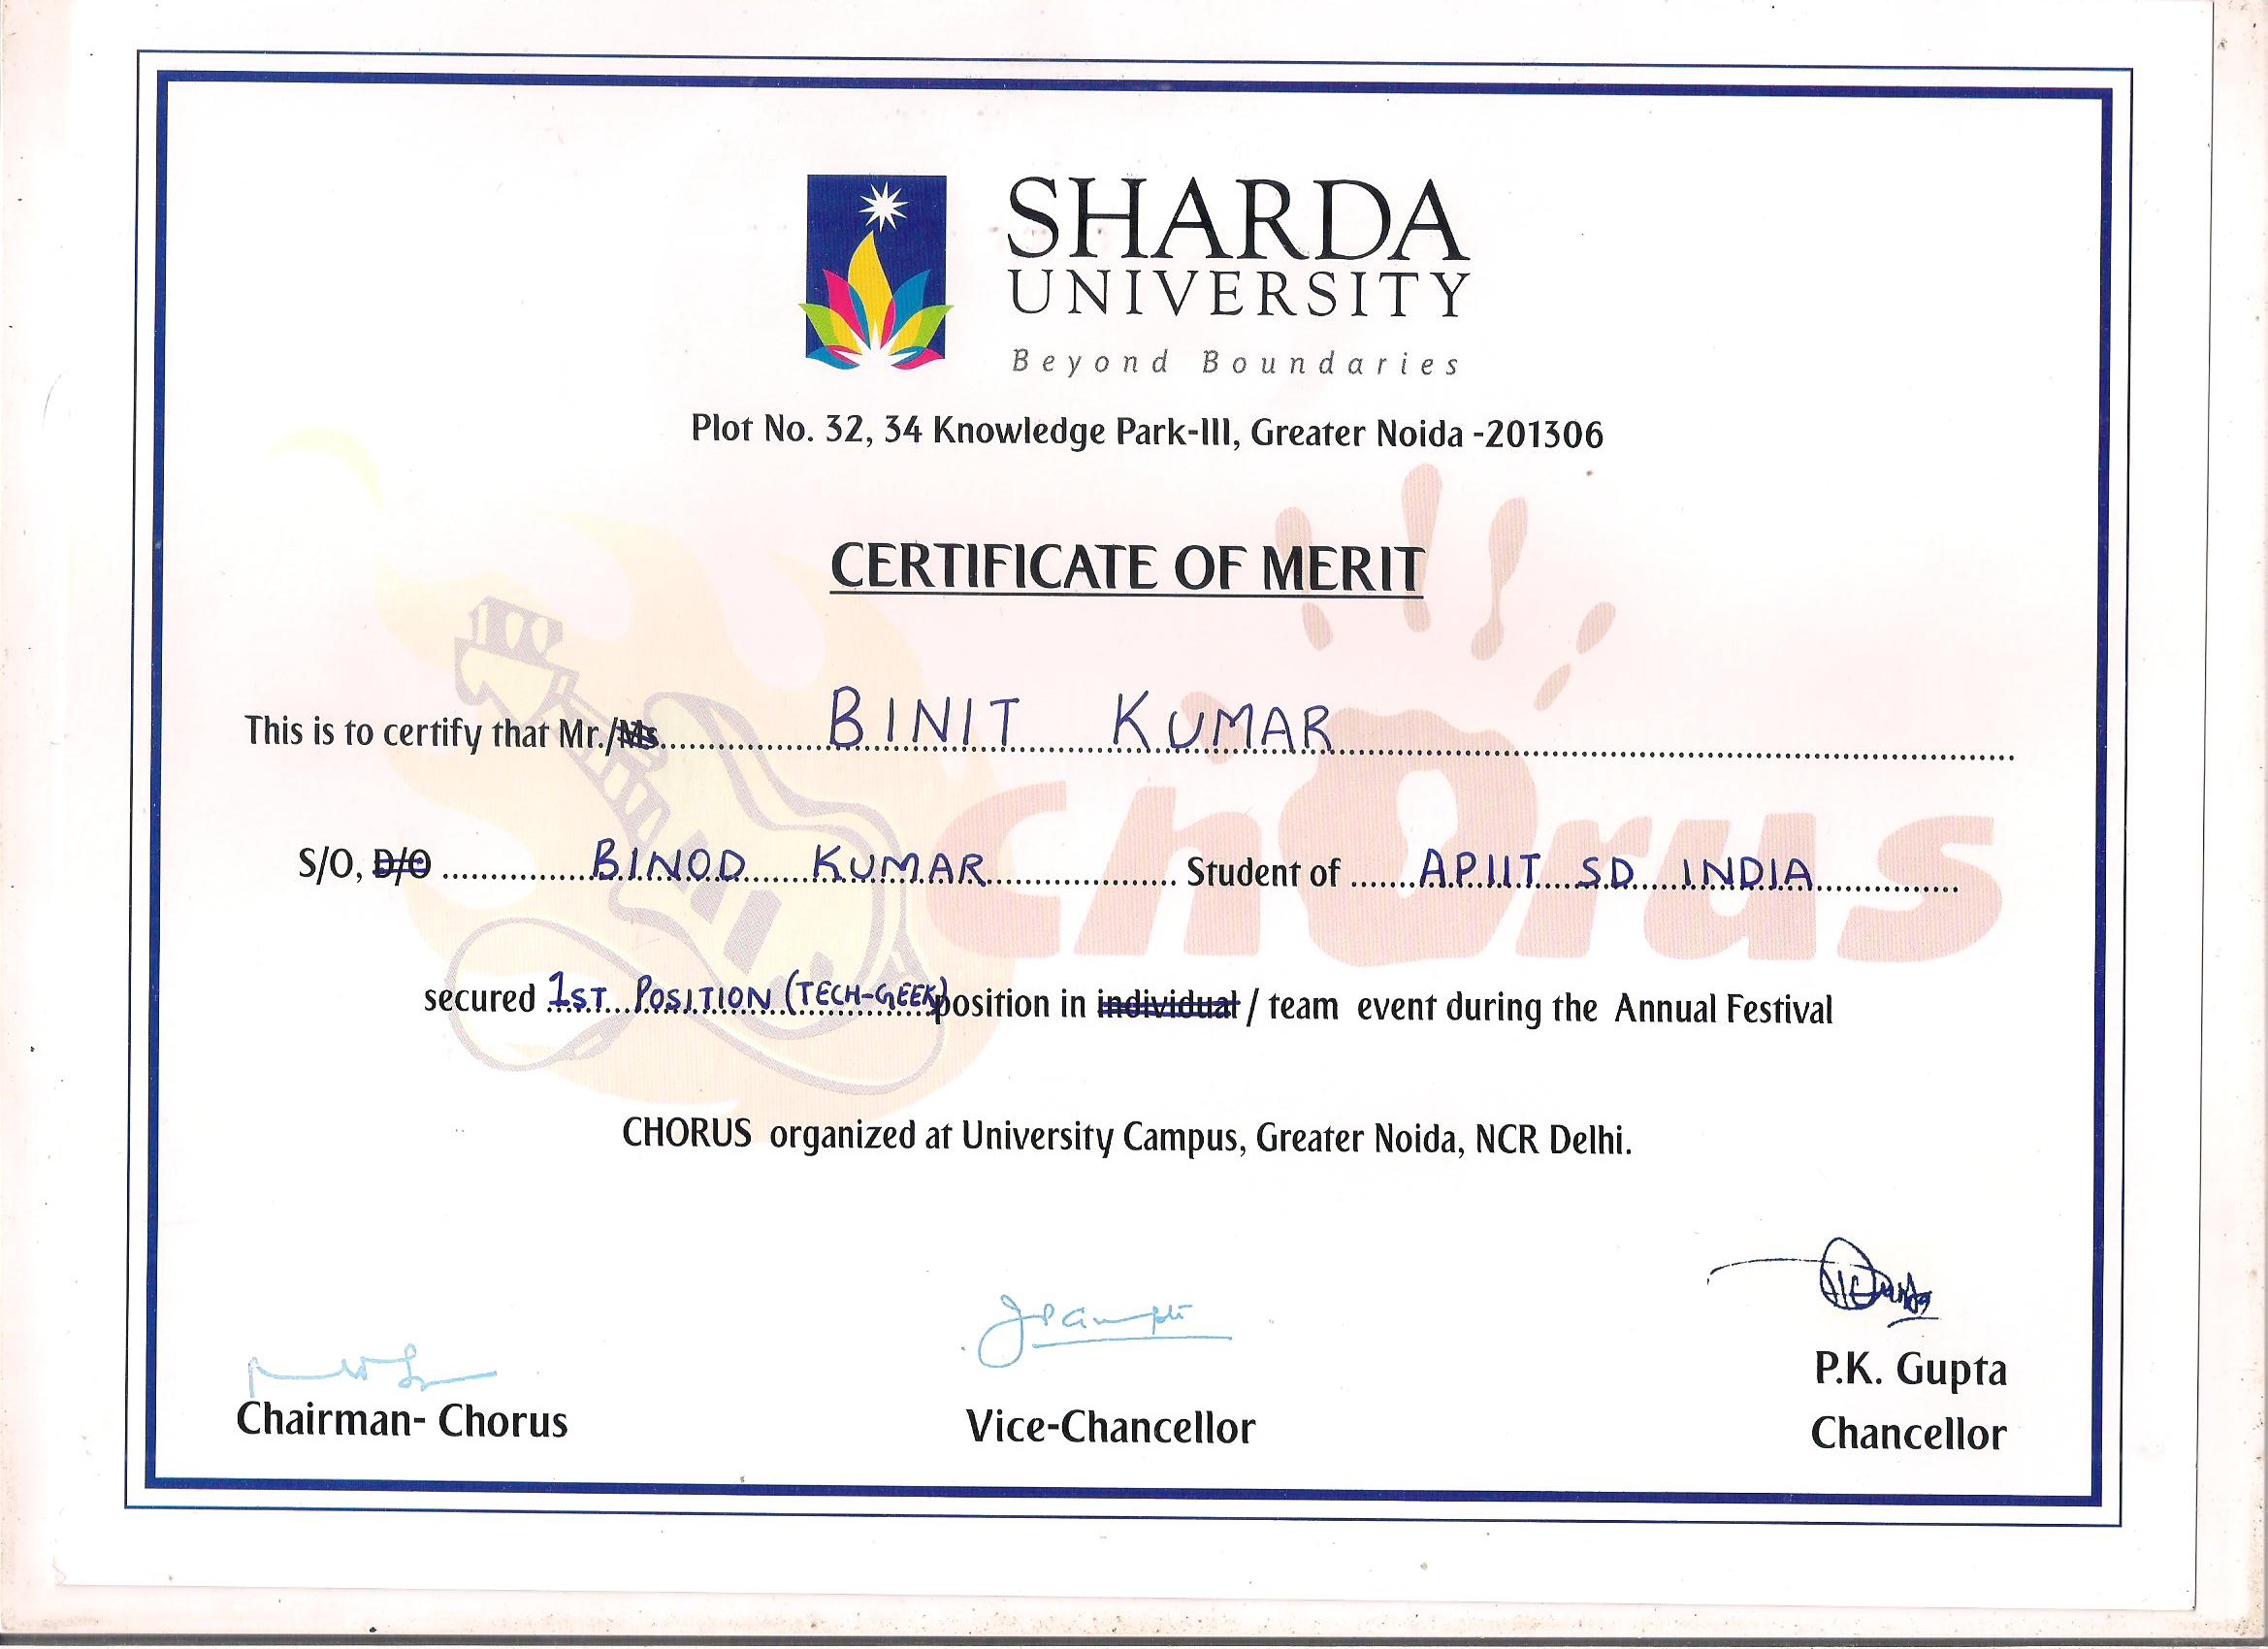 SHARDA
UNIVERSITY
Beyond Boundaries
Plot No. 32, 34 Knowledge Park-III, Greater Noida -201306
CERTIFICATE OF MERIT
This is to certify that Mr./Ms. BINIT KUMAR
S/O, D/O BINOD KUMAR Student of APIIT SD INDIA
chorus
secured 1ST POSITION (TECH-GEEK) position in individual / team event during the Annual Festival
CHORUS organized at University Campus, Greater Noida, NCR Delhi.
P.K. Gupta
Chairman- Chorus Vice-Chancellor Chancellor